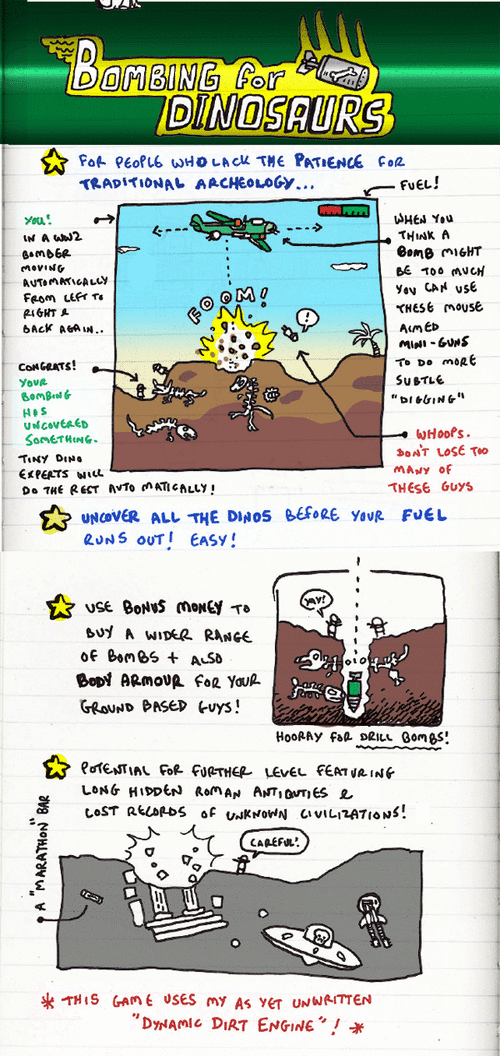 BOMBING for
DINOSAURS
FOR PEOPLE WHO LACK THE PATIENCE FOR
TRADITIONAL ARCHEOLOGY...
FUEL!
YOU!
IN A WW2
BOMBER
MOVING
AUTOMATICALLY
FROM LEFT TO
RIGHT &
BACK AGAIN..
WHEN YOU
THINK A
BOMB MIGHT
BE TOO MUCH
YOU CAN USE
THESE MOUSE
AIMED
MINI-GUNS
TO DO MORE
SUBTLE
"DIGGING"
FOOM!
!
CONGRATS!
YOUR
BOMBING
HAS
UNCOVERED
SOMETHING.
TINY DINO
EXPERTS WILL
DO THE REST AUTOMATICALLY!
WHOOPS.
DON'T LOSE TOO
MANY OF
THESE GUYS
UNCOVER ALL THE DINOS BEFORE YOUR FUEL
RUNS OUT! EASY!
USE BONUS MONEY TO
BUY A WIDER RANGE
OF BOMBS + ALSO
BODY ARMOUR FOR YOUR
GROUND BASED GUYS!
YAY!
HOORAY FOR DRILL BOMBS!
POTENTIAL FOR FURTHER LEVEL FEATURING
LONG HIDDEN ROMAN ANTIQUTIES &
LOST RECORDS OF UNKNOWN CIVILIZATIONS!
A "MARATHON" BAR
CAREFUL!
* THIS GAME USES MY AS YET UNWRITTEN
"DYNAMIC DIRT ENGINE"! *